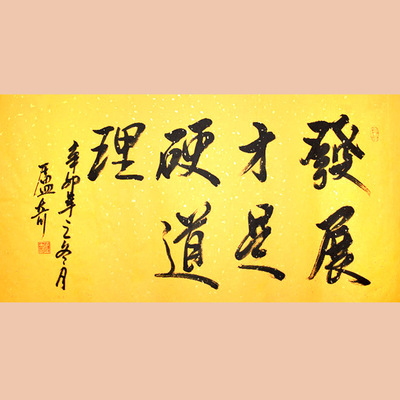 發展
才是
硬道
理
辛卯年之冬月
盧奇